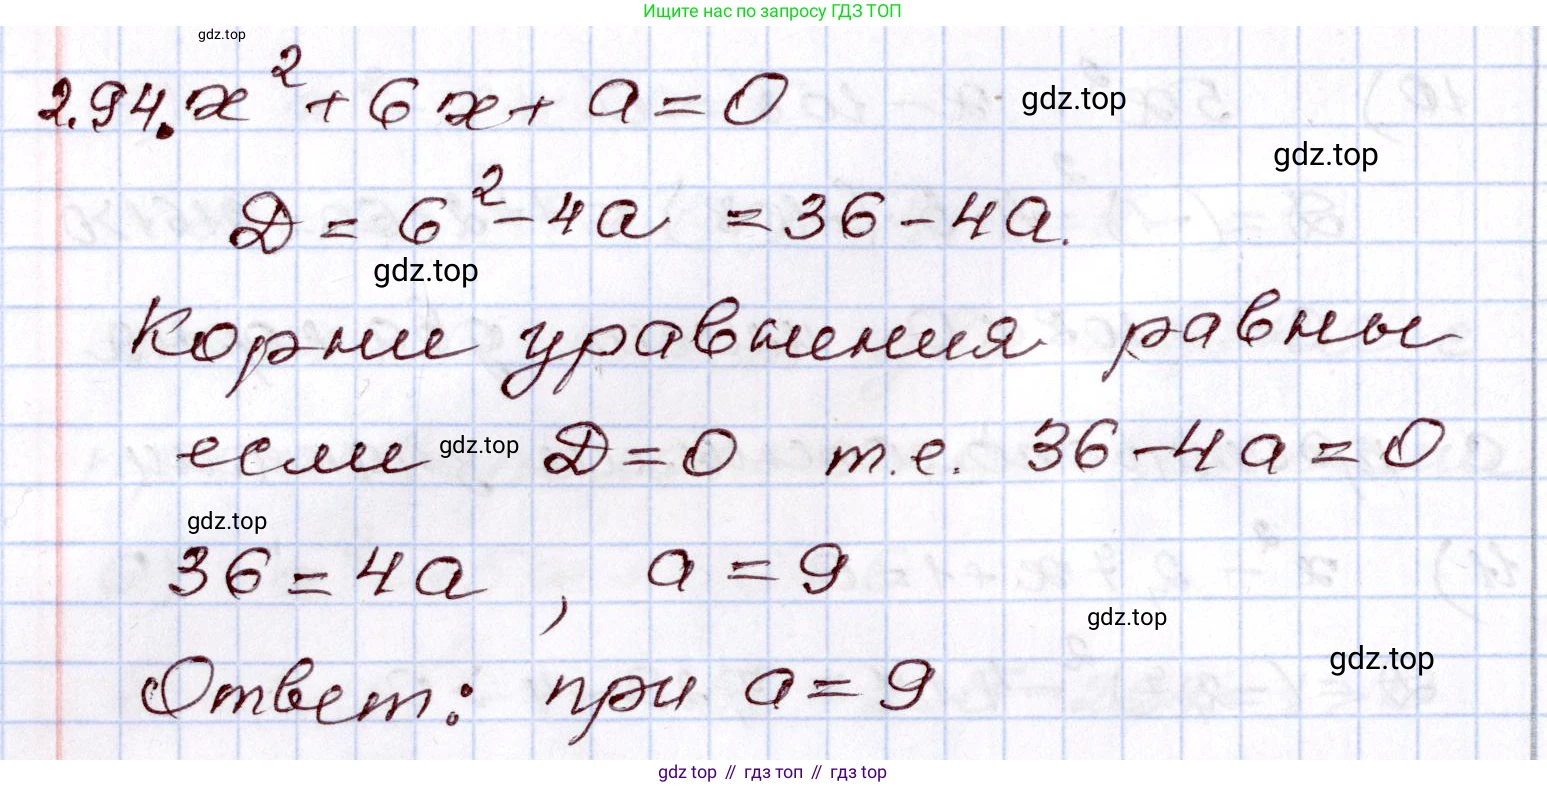 Ищите нас по запросу ГДЗ ТОП
gdz.top
2.94. x² + 6x + a = 0
gdz.top
gdz.top
Д = 6² - 4a = 36 - 4a.
gdz.top
Корни уравнения равны
если gdz.top Д = 0 т.е. 36 - 4a = 0
gdz.top
36 = 4a , a = 9
gdz.top
gdz.top
Ответ: при a = 9
gdz top // гдз топ // gdz top